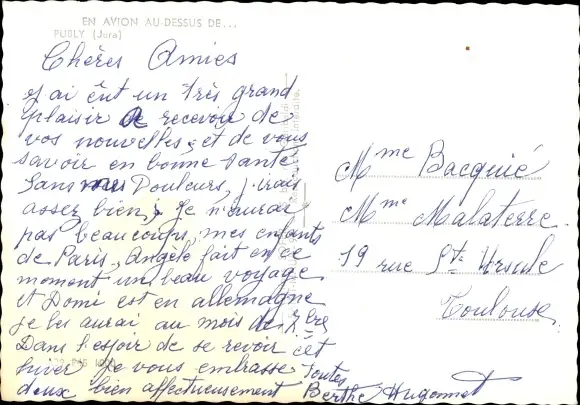 EN AVION AU-DESSUS DE...
PUBLY (Jura)
Chères Amies
J'ai êut un très grand
plaisir de recevoir de
vos nouvelles, et de vous
savoir en bonne santé
Sans mes Douleurs, j'irais
assez bien, je n'aurai
pas beaucoups, mes enfants
de Paris, Angèle fait en ce
moment un beau voyage
et Domi est en allemagne
je les aurai au mois de 7bre
Dans l'espoir de se revoir cêt
hiver je vous embrasse Toutes
deux bien affectueusement Berthe Hugonnet
Mme Bacquié
Mme Malaterre
19 rue Ste Ursule
Toulouse